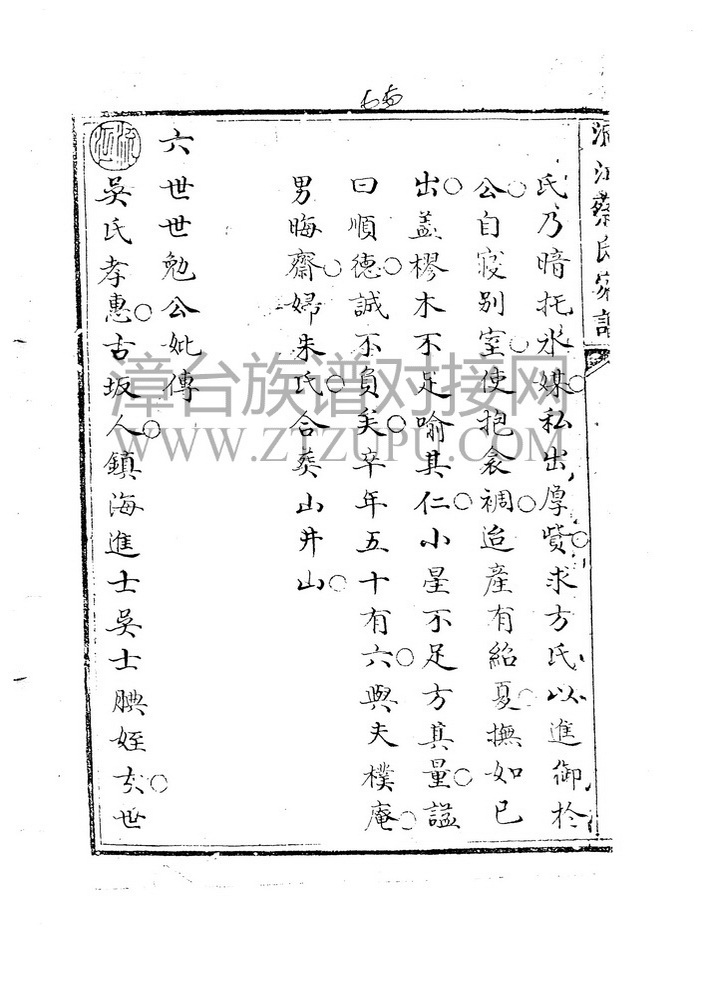 蔡氏家譜
氏乃暗托氷媒私出厚貲求方氏以進御於
公自寢別室使抱衾裯迨產有紹夏撫如已
出蓋樛木不足喻其仁小星不足方其量諡
曰順德誠不負矣卒年五十有六與夫樸庵
男晦齋婦朱氏合葬山井山
六世世勉公妣傳
吳氏孝惠古坂人鎮海進士吳士腆姪女世
漳台族谱对接网
WWW.ZTZUPU.COM